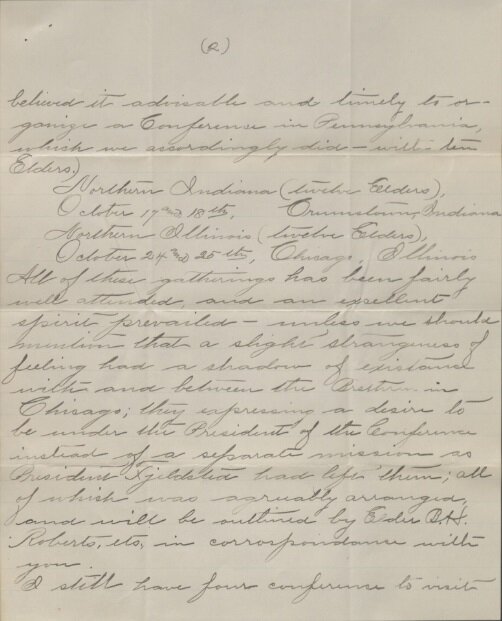 (2)
believed it advisable and timely to or-
ganize a Conference in Pennsylvania,
which we accordingly did - with ten
Elders.)
Northern Indiana (twelve Elders),
October 17 and 18th, Indiana
Northern Illinois (twelve Elders),
October 24 and 25th, Chicago, Illinois
All of these gatherings has been fairly
well attended, and an excellent
spirit prevailed - unless we should
mention that a slight strangeness of
feeling had a shadow of existance
with and between the Brethren in
Chicago; they expressing a desire to
be under the President of the Conference
instead of a separate mission as
President Fjeldsted had left them; all
of which was agreeably arranged,
and will be outlined by Elder B.H.
Roberts, etc, in correspondance with
you.
I still have four conference to visit